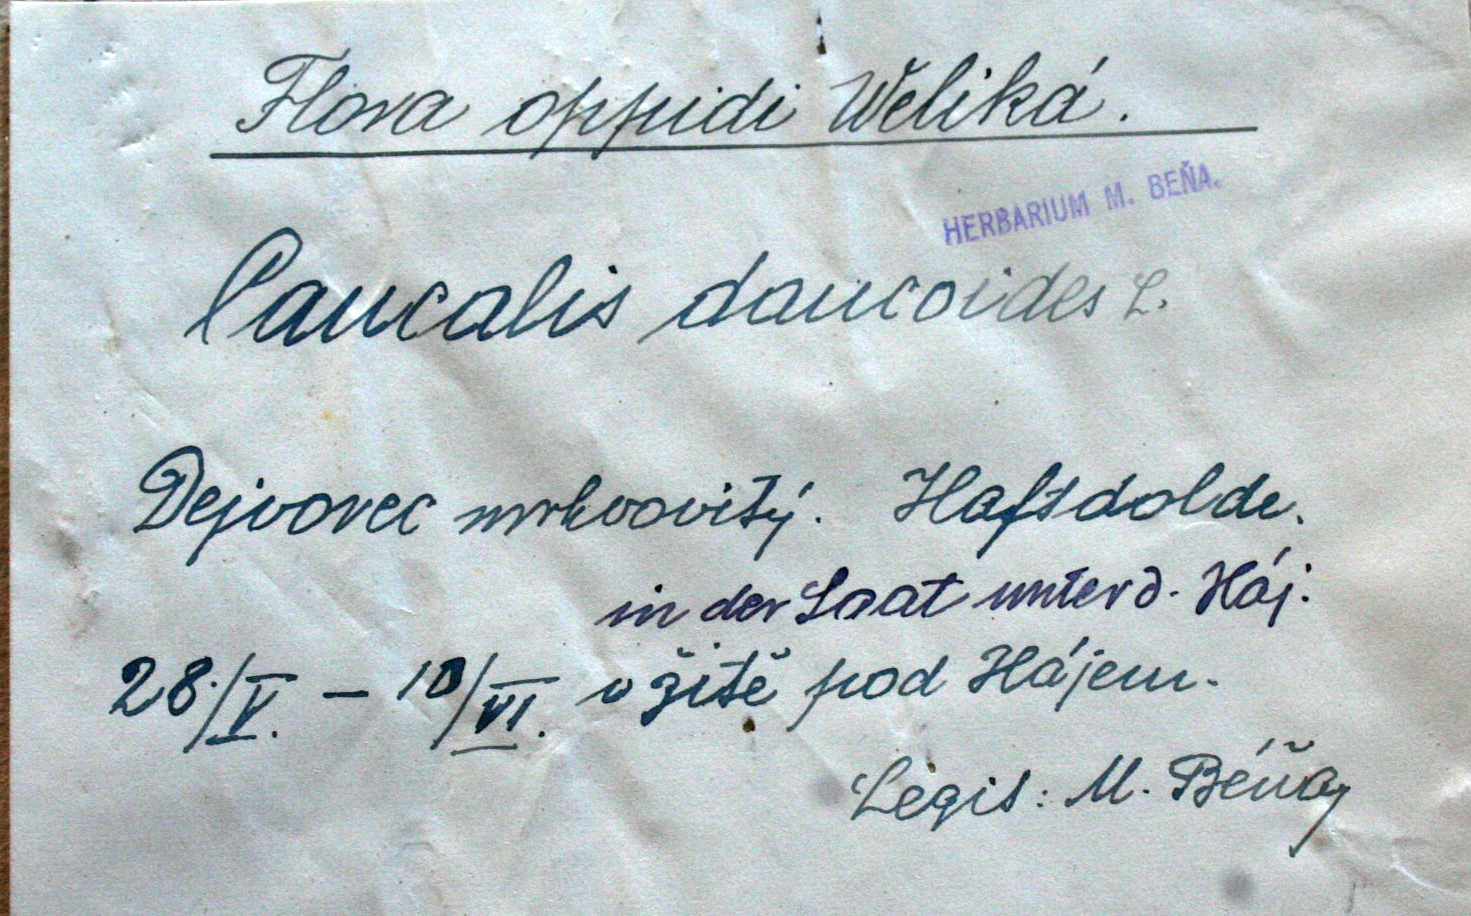 Flora oppidi Weliká.
HERBARIUM M. BEŇA.
Caucalis daucoides L.
Dejvorec mrkvovitý. Haftdolde.
in der Saat unter d. Háj.
28./V. – 10/VI. v žitě pod Hájem.
Legit: M. Béňa